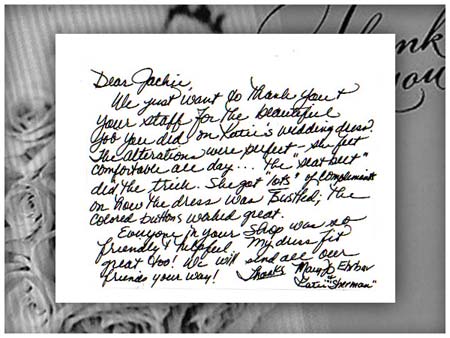 Thank
you
Dear Jackie,
We just want to thank you &
your staff for the beautiful
job you did on Katie's wedding dress!
The alterations were perfect - she felt
comfortable all day... The "seat belt"
did the trick. She got "lots" of compliments
on how the dress was bustled; the
colored buttons worked great.
Everyone in your shop was so
friendly & helpful. My dress fit
great too! We will send all our
friends your way!
Thanks Mary Jo
+
Katie "Sherman"